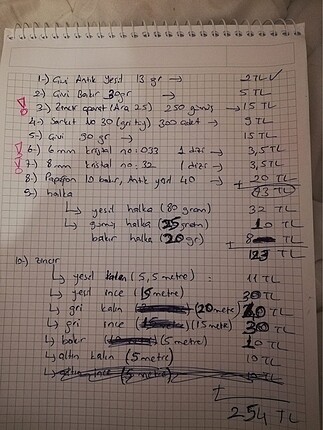 1-) Çivi Antik yeşil 13 gr → 2 TL ✓
2-) Çivi Bakır 30gr → 5 TL
3-) Zincir aparat (Ara 2.5) 250 gümüş → 15 TL
4-) Sarkıt No 30 (gri tig) 300 adet → 9 TL
5-) Çivi 90 gr → 15 TL
6-) 6 mm kristal no: 033 1 dizi → 3,5 TL
7-) 8 mm kristal no: 32 1 dizi → 3,5 TL
8-) Papyon 10 bakır, Antik yeşil 40 → + 20 TL
9-) halka 73 TL
↳ yeşil halka (80 gram) 32 TL
↳ gümüş halka (25 gram) 10 TL
bakır halka (20 gr) 8 TL
123 TL
10-) zincir
↳ yeşil kalın (5,5 metre) : 11 TL
↳ yeşil ince (15 metre) 30 TL
↳ gri kalın (20 metre) 40 TL
↳ gri ince (15 metre) 30 TL
↳ bakır (5 metre) 10 TL
↳ altın kalın (5 metre) 10 TL
+
254 TL